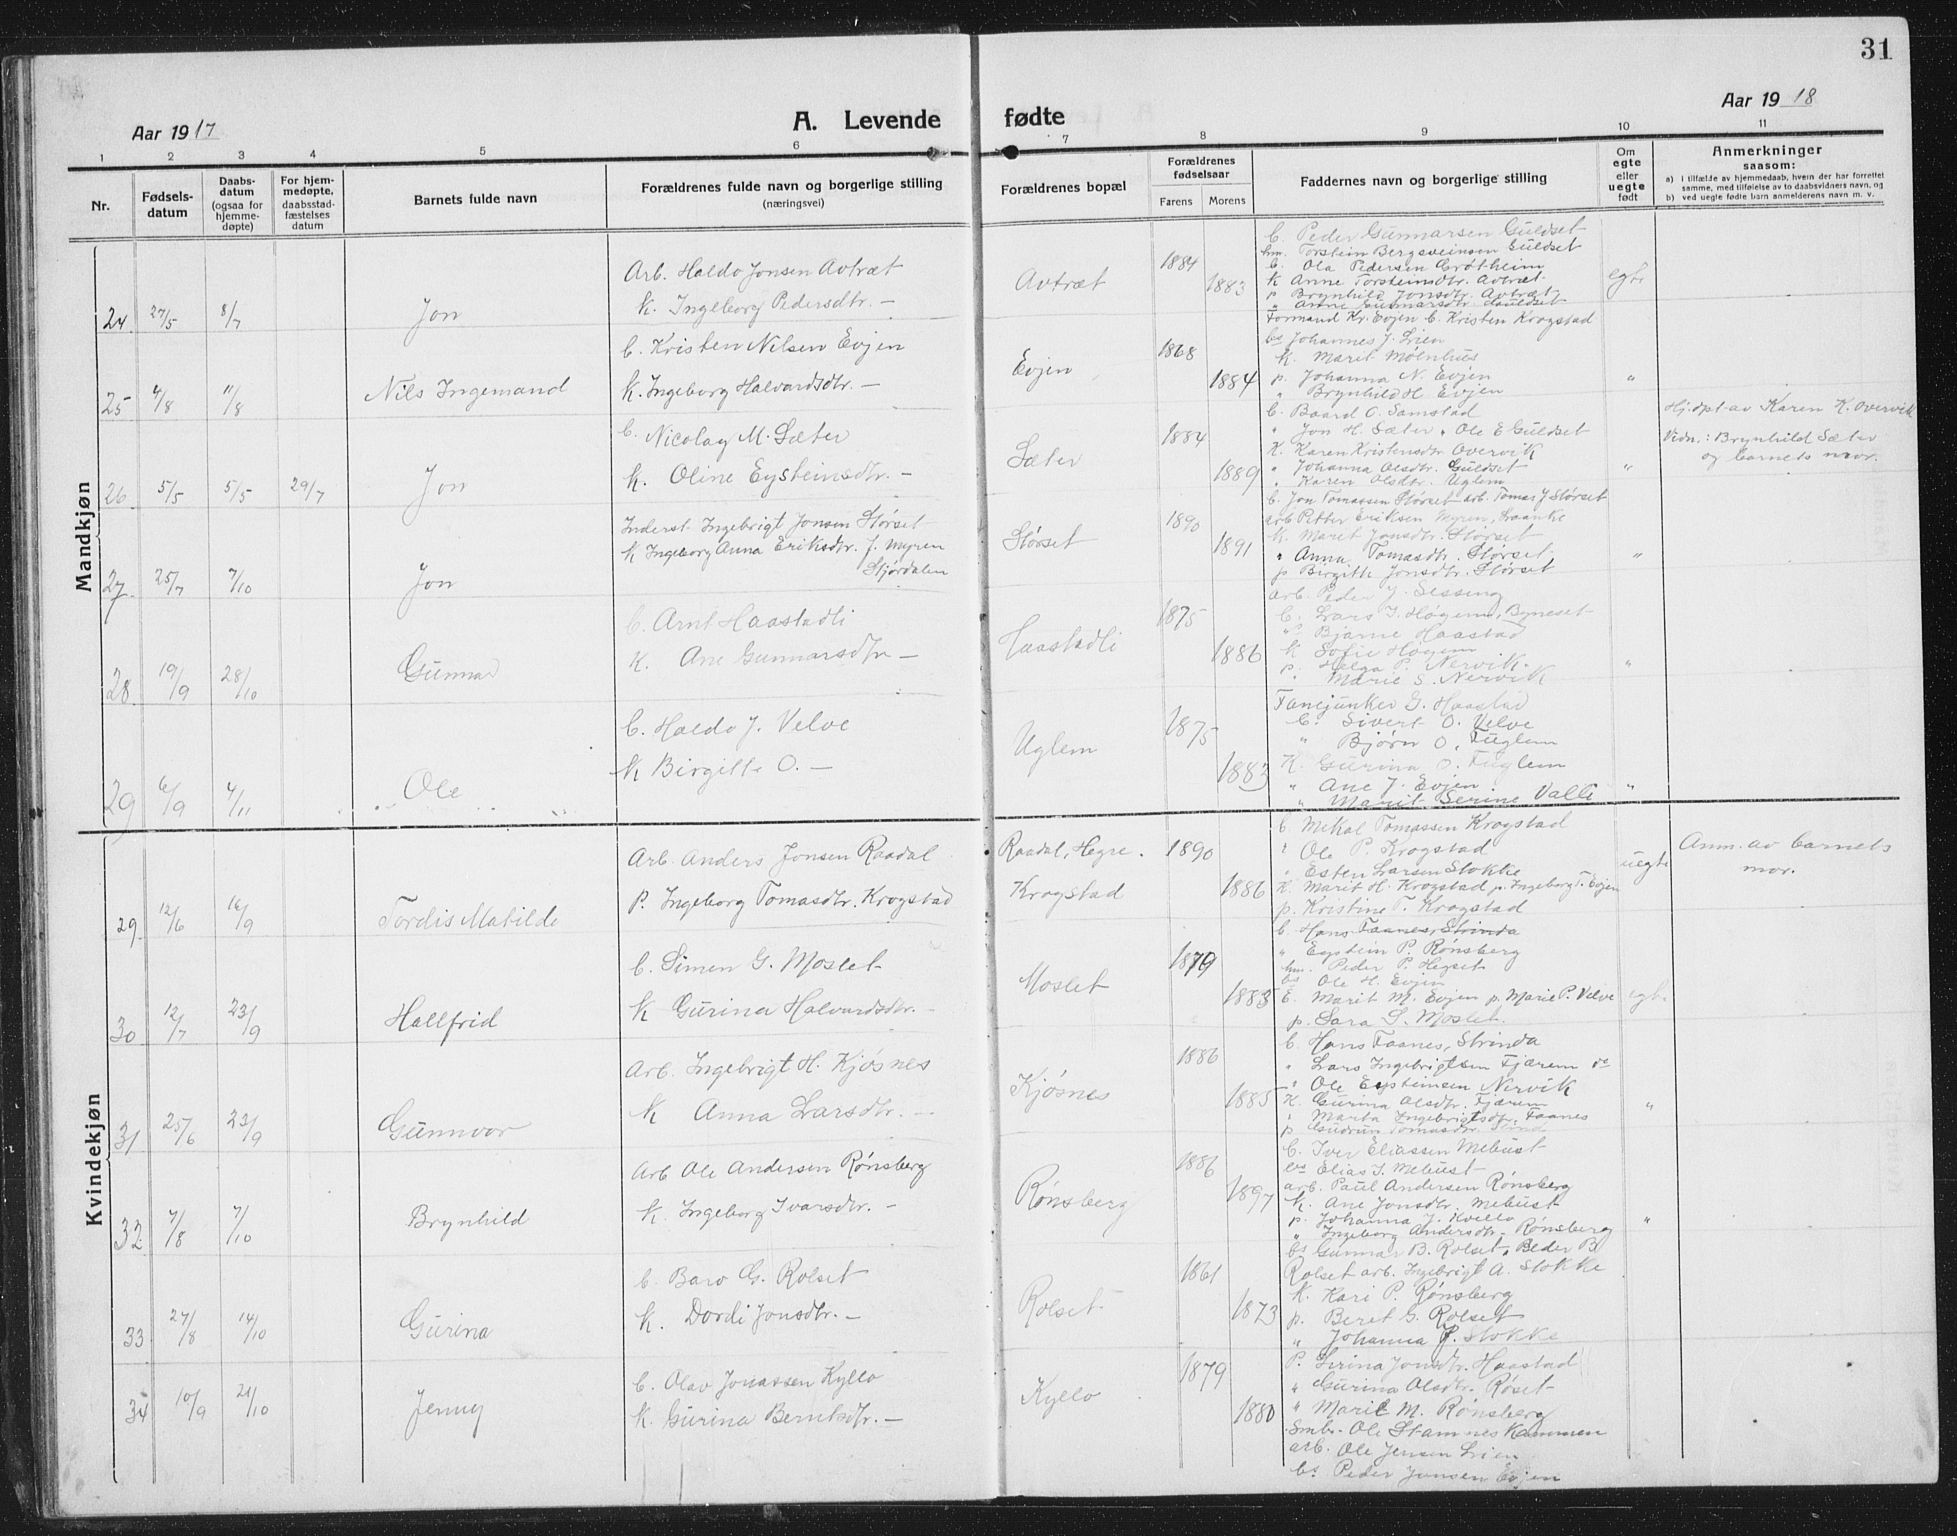 31
Aar 1917
A. Levende fødte
Aar 1918
1 2 3 4 5 6 7 8 9 10 11
Nr.
Fødsels-
datum
Daabs-
datum
(ogsaa for
hjemme-
døpte)
For hjem-
medøpte,
daabsstad-
fæstelses
datum
Barnets fulde navn
Forældrenes fulde navn og borgerlige stilling
(næringsvei)
Forældrenes bopæl
Forældrenes
fødselsaar
Farens Morens
Faddernes navn og borgerlige stilling
Om
egte
eller
uegte
født
Anmerkninger
saasom:
a) I tilfælde av hjemmedaab, hvem der har forrettet
samme, med tilføielse av to daabsvidners navn, og
b) ved uegte fødte barn anmelderens navn m. v.
Mandkjøn
24 27/5 8/7 Jon
Arb. Haldo Jonsen Avtræt
K. Ingeborg Pedersdtr. —
Avtræt 1884 1883
b. Peder Gunnarsen Guldset
hm. Torstein Bergsveinsen Guldset
b. Ola Pedersen Grøtheim
K Anne Torsteinsdtr. Avtræt
p Brynhild Jonsdtr. Avtræt
" Anne Gunnarsdtr. Guldset
egte
25 4/8 11/8 Nils Ingemand
b. Kristen Nilsen Evjen
K. Ingeborg Halvardsdtr. —
Evjen 1868 1884
Formand Kr. Evjen b. Kristen Krogstad
bs Johannes J. Lien
K. Marit Mølnhus
p. Johanna N. Evjen
" Brynhild H. Evjen
"
26 5/5 5/5 29/7 Jon
b. Nicolay M. Sæter
K. Oline Eysteinsdtr. —
Sæter 1884 1889
b. Baard O. Samstad
" Jon H. Sæter " Ole E Guldset
K. Karen Kristensdtr Overvik
" Johanna Olsdtr. Guldset
" Karen Olsdtr. Uglem
"
Hj.dpt. av Karen K. Overvik
Vidn.: Brynhild Sæter
og barnets mor.
27 25/7 7/10 Jon
Inderst. Ingebrigt Jonsen Størset
K Ingeborg Anna Eriksdtr. f. Myren
Stjørdalen
Størset 1890 1891
b. Jon Tomassen Størset arb. Tomas J Størset
arb Petter Eriksen Myren, Laanke
K. Marit Jonsdtr. Størset
" Anna Tomasdtr. Størset
p Birgitte Jonsdtr. Størset
"
28 19/9 28/10 Gunnar
b. Arnt Haastadli
K. Ane Gunnarsdtr —
Haastadli 1875 1886
arb. Peder J. Sesseng
b. Lars J. Høgem, Byneset
Bjarne Haastad
K Sofie Høgem
p. Helga P. Nervik
" Marie S. Nervik
"
29 6/9 4/11 Ole
b. Haldo J. Velve
K Birgitte O. —
Uglem 1875 1883
Fanejunker G. Haastad
b. Sivert O. Velve
" Bjørn O. Fuglem
K. Gurina O. Fuglem
" Ane J. Evjen
" Marit Serine Valle
"
Kvindekjøn
29 12/6 16/9 Tordis Matilde
Arb. Anders Jonsen Raadal
p. Ingeborg Tomasdtr. Krogstad
Raadal, Hegre.
Krogstad
1890 1886
b. Mikal Tomassen Krogstad
" Ole P. Krogstad
" Esten Larsen Stokke
K. Marit H. Krogstad p. Ingeborg T. Evjen
p. Kristine T. Krogstad
uegte
Anm. av barnets
mor.
30 12/7 23/9 Hallfrid
b. Simen G. Moslet
K Gurina Halvardsdtr. —
Moslet 1879 1883
b. Hans Faanes, Strinda
" Eystein P. Rønsberg
hm. Peder P. Hegset
bs Ole H. Evjen
E. Marit M. Evjen p. Marie P. Velve
p. Sara S. Moslet
egte
31 25/6 23/9 Gunnvor
Arb. Ingebrigt H. Kjøsnes
K Anna Larsdtr. —
Kjøsnes 1886 1885
b. Hans Faanes, Strinda
" Lars Ingebrigtsen Fjærem do
" Ole Eysteinsen Nervik
K. Gurina Olsdtr. Fjærem
" Marta Ingebrigtsdtr. Faanes
p Gudrun Tomasdtr.
"
32 7/8 7/10 Brynhild
Arb Ole Andersen Rønsberg
K. Ingeborg Ivarsdtr. —
Rønsberg 1886 1897
b. Iver Eliassen Mebust
bs Elias I. Mebust
arb. Paul Andersen Rønsberg
K. Ane Jonsdtr. Mebust
p. Johanna J. Kvello
" Ingeborg Andersdtr. Rønsberg
"
33 27/8 14/10 Gurina
b. Baro G. Rolset
K. Dordi Jonsdtr. —
Rolset 1861 1873
bs Gunnar B. Rolset, Peder B
Rolset arb. Ingebrigt A. Stokke
K. Kari P. Rønsberg
p. Beret G. Rolset
" Johanna P. Stokke
34 10/9 21/10 Jenny
b. Olav Jonassen Kyllo
K. Gurina Berntsdtr. —
Kyllo 1879 1880
P. Sirina Jonsdtr. Haastad
" Gurina Olsdtr. Røset
" Marit M. Rønsberg
Smbr. Ole Stamnes Kammen
arb. Ole Jensen Lien
bs Peder Jonsen Evjen